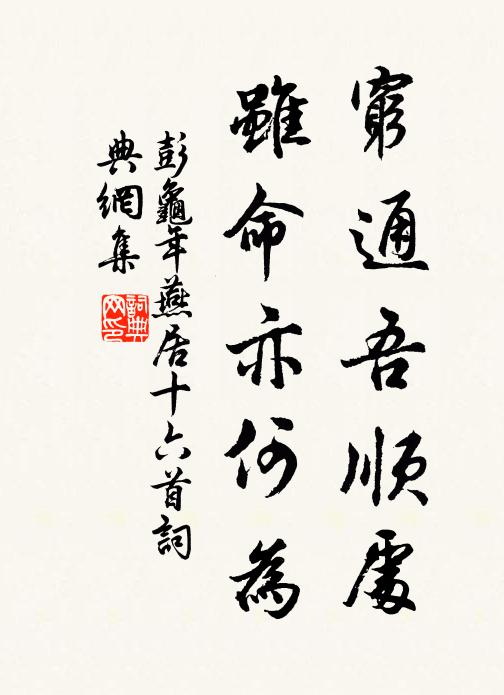 窮通吾順處
雖命亦何為
彭龜年燕居十六首詞
典網集
詞典网印